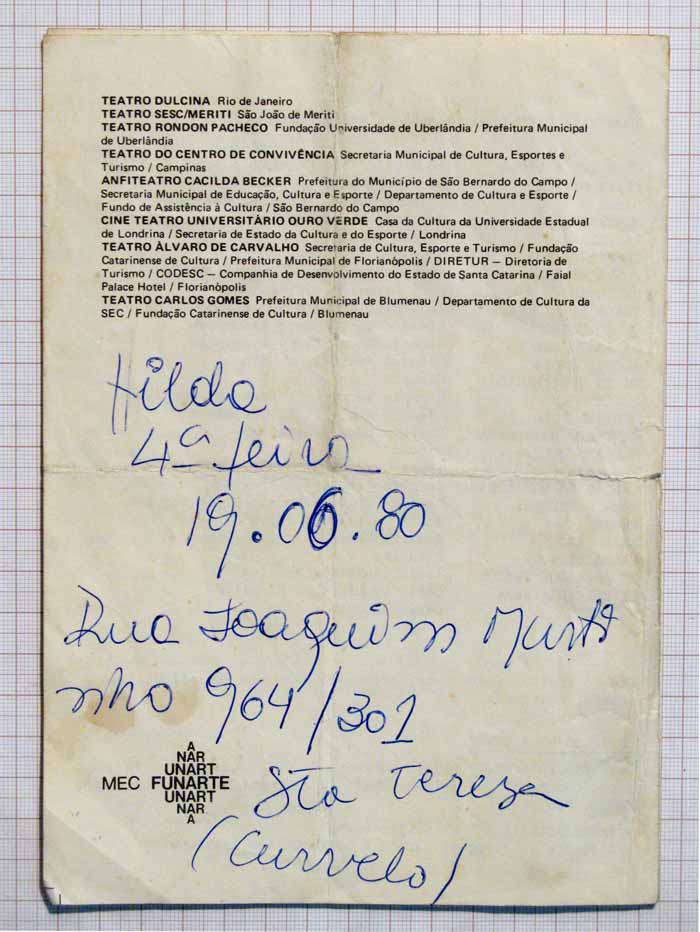 TEATRO DULCINA Rio de Janeiro
TEATRO SESC/MERITI São João de Meriti
TEATRO RONDON PACHECO Fundação Universidade de Uberlândia / Prefeitura Municipal
de Uberlândia
TEATRO DO CENTRO DE CONVIVÊNCIA Secretaria Municipal de Cultura, Esportes e
Turismo / Campinas
ANFITEATRO CACILDA BECKER Prefeitura do Município de São Bernardo do Campo /
Secretaria Municipal de Educação, Cultura e Esporte / Departamento de Cultura e Esporte /
Fundo de Assistência à Cultura / São Bernardo do Campo
CINE TEATRO UNIVERSITÁRIO OURO VERDE Casa da Cultura da Universidade Estadual
de Londrina / Secretaria de Estado da Cultura e do Esporte / Londrina
TEATRO ÀLVARO DE CARVALHO Secretaria de Cultura, Esporte e Turismo / Fundação
Catarinense de Cultura / Prefeitura Municipal de Florianópolis / DIRETUR — Diretoria de
Turismo / CODESC — Companhia de Desenvolvimento do Estado de Santa Catarina / Faial
Palace Hotel / Florianópolis
TEATRO CARLOS GOMES Prefeitura Municipal de Blumenau / Departamento de Cultura da
SEC / Fundação Catarinense de Cultura / Blumenau
Hilda
4ª feira
19.06.80
Rua Joaquim Murti
nho 964/301
A
NAR
UNART
MEC FUNARTE
UNART
NAR
A
Sta Tereza
(Curvelo)